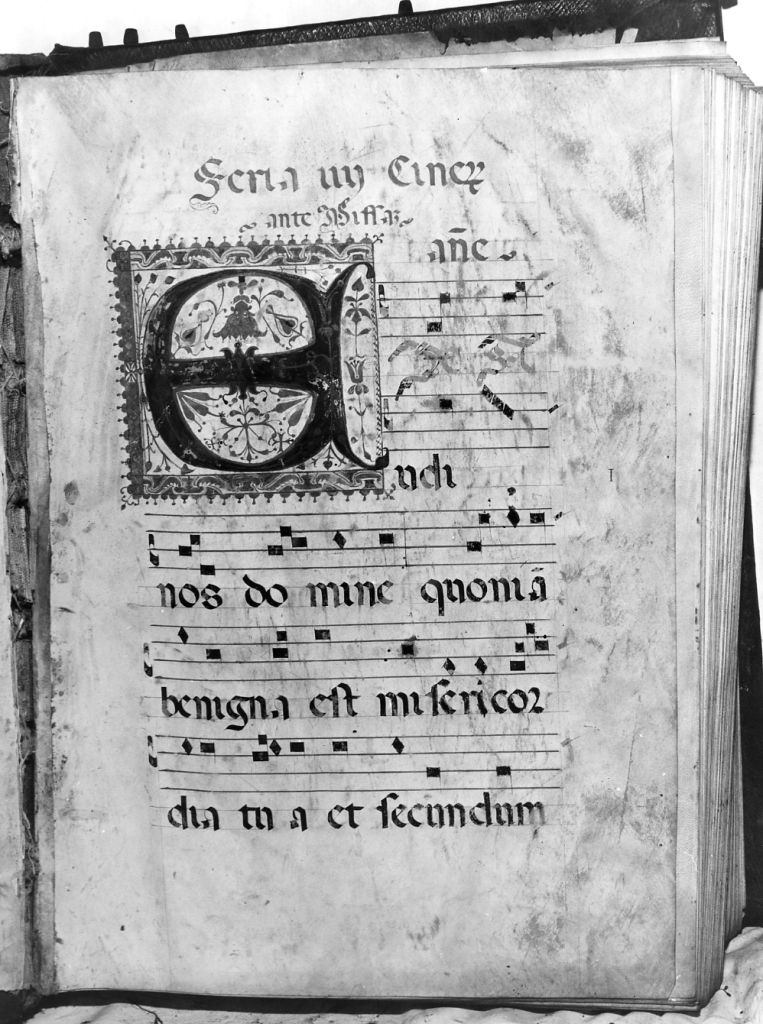 Feria iiij Cineꝝ
ante Missaz
añe
E X A
udi
I
nos do mine quoniã
benigna est misericor
dia tu a et secundum